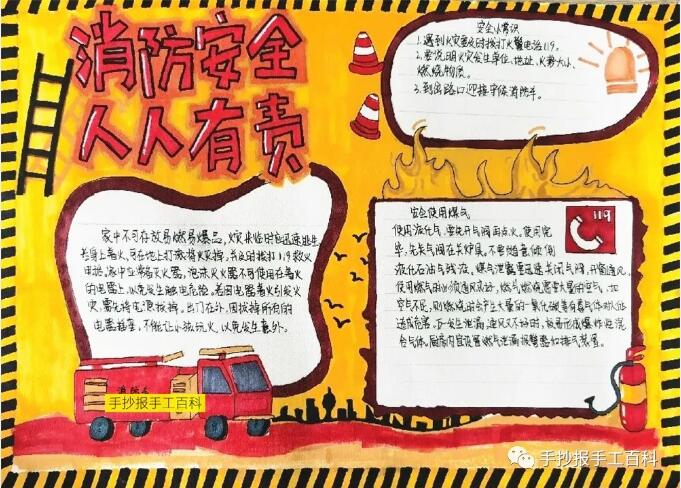 消防安全
人人有责
安全小常识
1.遇到火灾要及时拨打火警电话119。
2.要说明火灾发生单位、地址、火势大小、
燃烧物质。
3.到出路口迎接等候消防车。
家中不可存放易燃易爆品，火灾来临时要迅速逃生
若身上着火，可在地上打滚将火灭掉，并及时拨打119救火
电话，家中应常备灭火器，泡沫灭火器不可使用在着火
的电器上，以免发生触电危险。若因电器着火引发火
灾，要先将电源拔掉。出门在外，因拔掉所有的
电器插座，不能让小孩玩火，以免发生意外。
安全使用煤气
使用液化气，要先开气阀再点火。使用完
毕，先关气阀在关炉具。不要随意倾倒
液化石油气残液，煤气泄露要迅速关闭气阀，开窗通风。
使用燃气时必须通风良好，燃气燃烧需要大量的空气，如
空气不足，则燃烧时会产生大量的一氧化碳等有毒气体对人体
造成危害。万一发生泄漏，通风又不好时，极易形成爆炸性混
合气体，厨房内宜设置燃气泄漏报警器和排气装置。
119
消防车
手抄报手工百科
手抄报手工百科